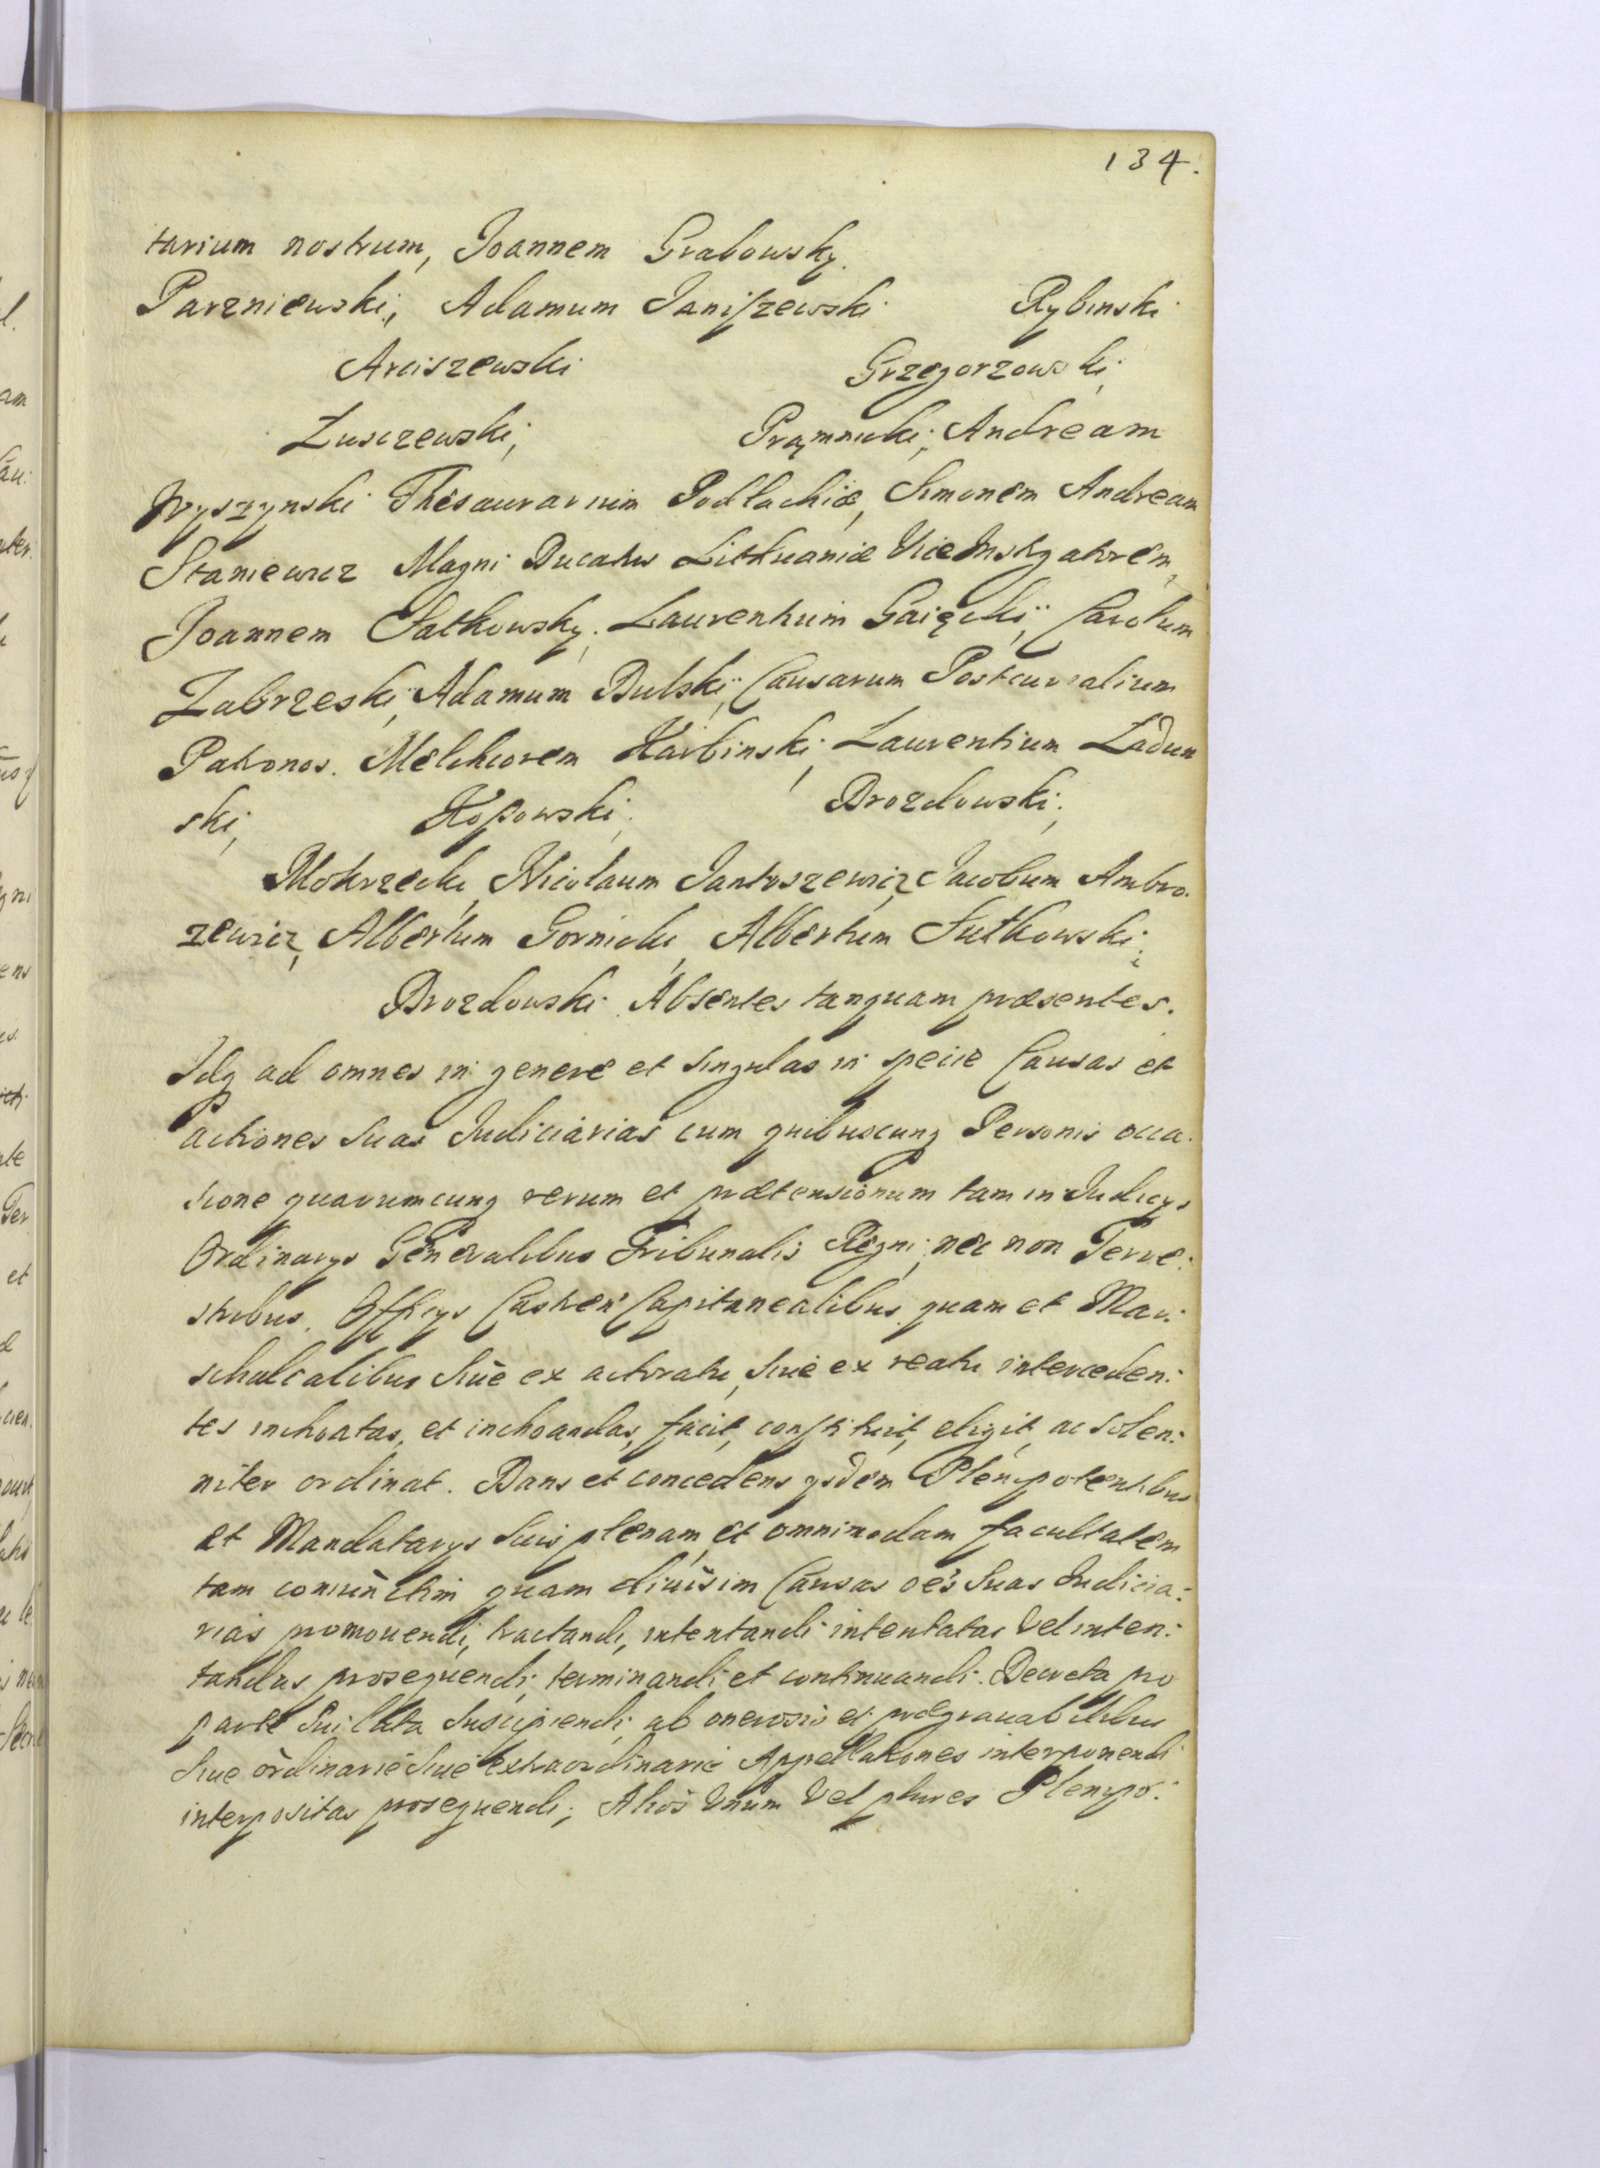 134.
tarium nostrum, Joannem Grabowsky.
Parzniewski, Adamum Janiszewski Rybinski
Arciszewski Grzegorzowski,
Łusczewski, Prąmnicki, Andream
Wyszynski Thesaurarium Podlachiæ, Simonem Andream
Staniewicz Magni Ducatus Lithuaniæ ViceInstigatorem,
Joannem Fatkowsky, Laurentium Gaięcki, Carolum
Zabrzeski, Adamum Bulski, Causarum Postcurialium
Patronos. Melchiorem Karbinski, Laurentium Ładun
ski, Kopowski, Drozdowski,
Mokrzecki, Nicolaum Jantoszewicz, Jacobum Ambro.
zewicz, Albertum Gornicki, Albertum Sutkowski,
Drozdowski. Absentes tanquam præsentes.
Idq ad omnes in genere et singulas in specie Causas et
actiones suas Judiciarias cum quibuscunq Personis occa.
sione quarumcunq rerum et prætensionum tam in Judicys
Ordinarys Generalibus Tribunalis Regni, nec non Terre:
stribus, Officys Castren Capitanealibus quam et Mar:
schalcalibus siue ex actoratu, siue ex reatu interceden:
tes inchoatas, et inchoandas, facit, constituit, eligit, ac solen:
niter ordinat. Dans et concedens ysdem Plenipotentibus
et Mandatarys suis plenam et omnimodam facultatem
tam coniunctim quam diuisim Causas oes suas Judicia:
rias promouendi, tractandi, intentandi intentatas vel inten:
tandas prosequendi, terminandi et continuandi. Decreta pro
parte sui lata suscipiendi, ab onerosis et prægrauatibus
siue ordinarie siue extraordinarie Appellationes interponendi
interpositas prosequendi; Alios Vnum Vel plures Plenipo: